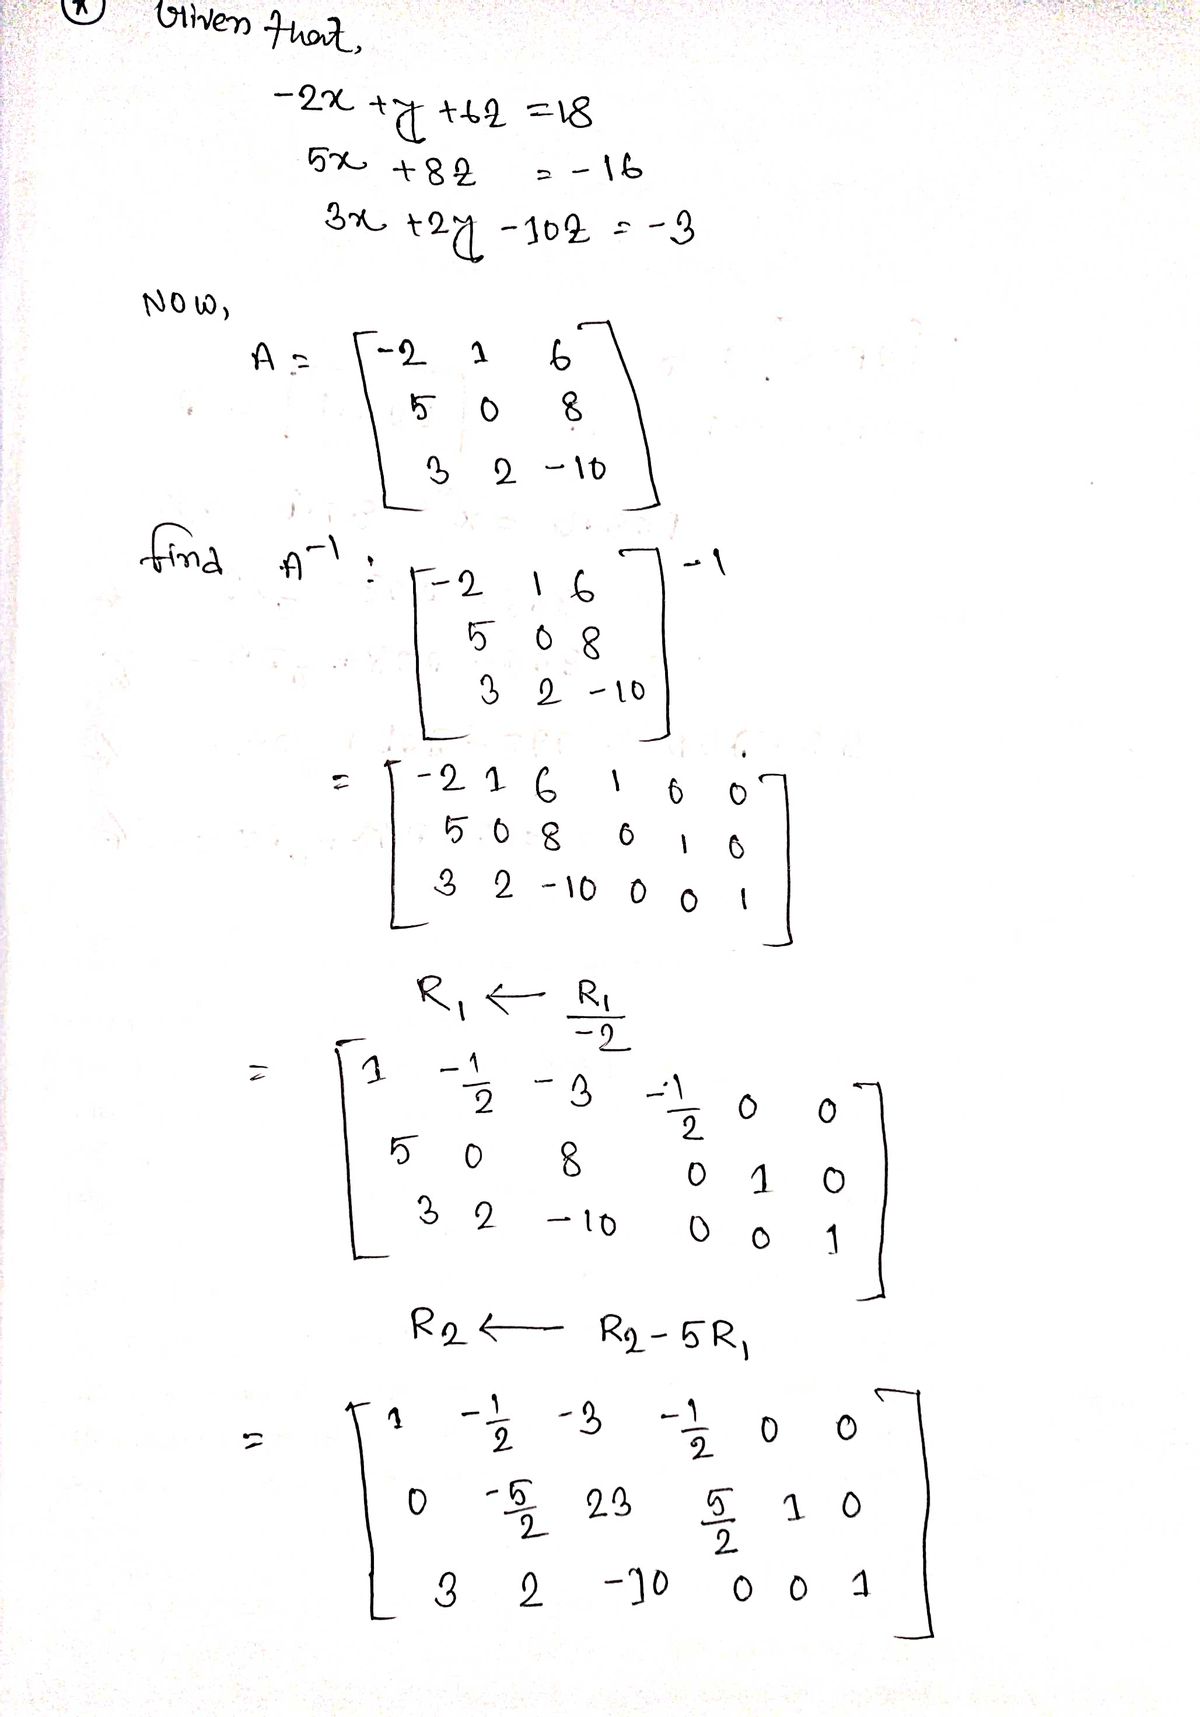 (*) Given that,
-2x + y + 6z = 18
5x + 8z = -16
3x + 2y - 10z = -3
Now,
A = [-2 1 6
5 0 8
3 2 -10]
find A⁻¹ : [-2 1 6
5 0 8
3 2 -10]⁻¹
= [-2 1 6 1 0 0
5 0 8 0 1 0
3 2 -10 0 0 1]
R₁ ← R₁/-2
= [1 -1/2 -3 -1/2 0 0
5 0 8 0 1 0
3 2 -10 0 0 1]
R₂ ← R₂ - 5R₁
= [1 -1/2 -3 -1/2 0 0
0 -5/2 23 5/2 1 0
3 2 -10 0 0 1]